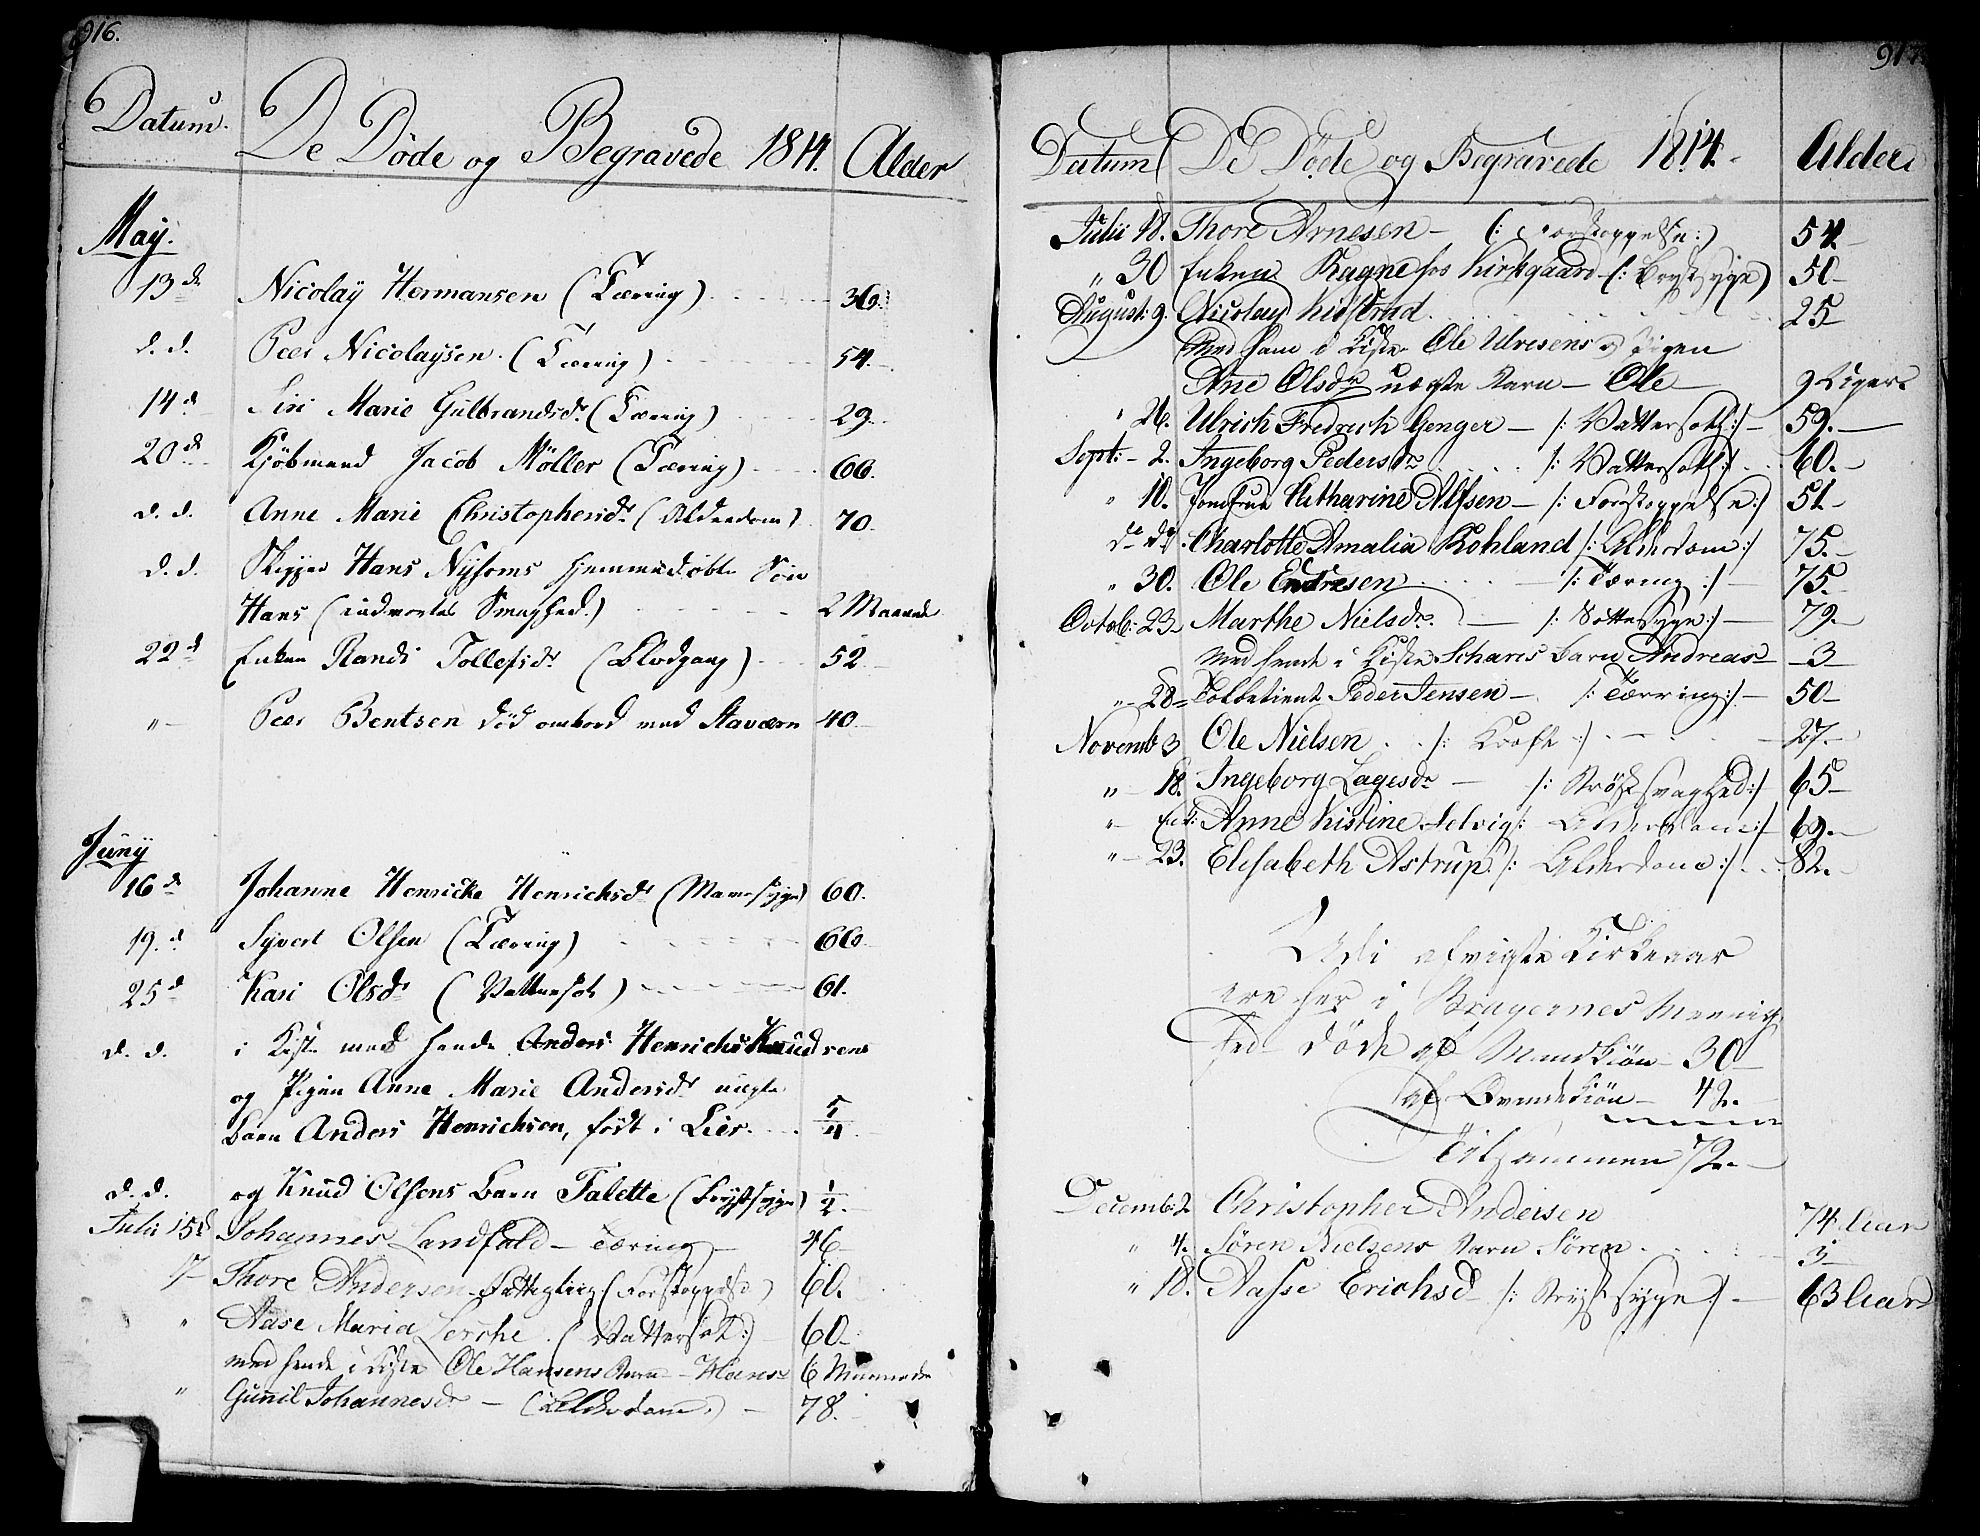 916.
Datum. De Döde og Begravede 1814. Alder
May.
13de Nicolaÿ Hermansen (Tæring) 36.
d. d. Peer Nicolaysen. (Tæring) 54.
14d Siri Marie Gulbrandsdr (Tæring) 29.
20de Kjöbmand Jacob Möller (Tæring) 66.
d. d. Anne Marie Christophersdr (Alderdom) 70.
d. d. Skipper Hans Nÿsoms hjemmedöbte Sön
Hans (indvortes Svaghed.) 2 Maaned
22d Enken Randi Tollefsdr (Blodgang) 52
" Peer Bentsen död ombord ved Staværn 40.
Junÿ
16de Johanne Henricke Henrichsdr (Mavesyge) 60.
19.d Syvert Olsen (Tæring) 66
25d Kari Olsdr (Vattersot) 61.
d. d. i Kiste med hende Anders Henrichs Knudsens
og Pigen Anne Marie Andersdr uægte
barn Anders Henrichsen, födt i Lier. 5/4
d. d. og Knud Olsens Barn Talette (Brystsyge) 1/2.
Julii 15d Johannes Landfald - Tæring - 46
7 Thore Andersen Fattiglieg (Forstoppelse) 60.
" Aase Maria Lerche. (Vattersot) 60.
med hende i Kiste Ole Hansens Barn - Hans 6 Maaneder
" Gunnil Johannesdr - (Alderdom.) - 78.
917.
Datum De Döde og Begravede 1814. Alder
Julii 18. Thore Arnesen - (: Forstoppelse:) 54
" 30 Enken Ragne hos Kirkgaard (: Brystsyge) 50
August: 9. Nicolay 25
Med ham i Kiste Ole Ulvesens og Pigen
Ane Olsdr uægte Barn - Ole 9 Uger
" 26. Ulrich Fredrich Genger - /: Vattersoth:/ - 59.
Sept: - 2. Ingeborg Pedersdr /: Vattersoth:/ 60.
" 10. Jomfrue Catharine Alfsen - /: Forstoppelse:/ 51
do do. Charlotte Amalia Kohland /: Alderdom:/ 75.
" 30. Ole Endresen - /: Tæring:/ - 75.
Octob: 23 Marthe Nielsdr. - /: Sottesyge:/ - 79.
Med hende i Kiste Schares Barn Andreas 3
" 28 Tolbetient Peder Jensen - /: Tærring:/ - 50
Novemb 3 Ole Nielsen /: :/ 27.
" 18. Ingeborg Lagesdr - /: Bröstsvaghed:/ 65
" Anne Kistine Selvig /: Alderdom:/ 69.
" 23. Elisabeth Astrup. /: Alderdom:/ 82.
Udi afvigte Kirkeaar
ere her i Bragernes Meenig
hed döde af Mandkiön - 30
af Qvindekiön - 42.
Tilsammen 72.
Decemb: 2 Christopher Andersen 74 Aar
" 4. Sören Nielsens Barn Sören 3
" 18. Aasse Erichsd /: Brystsyge:/ - 63 Aar